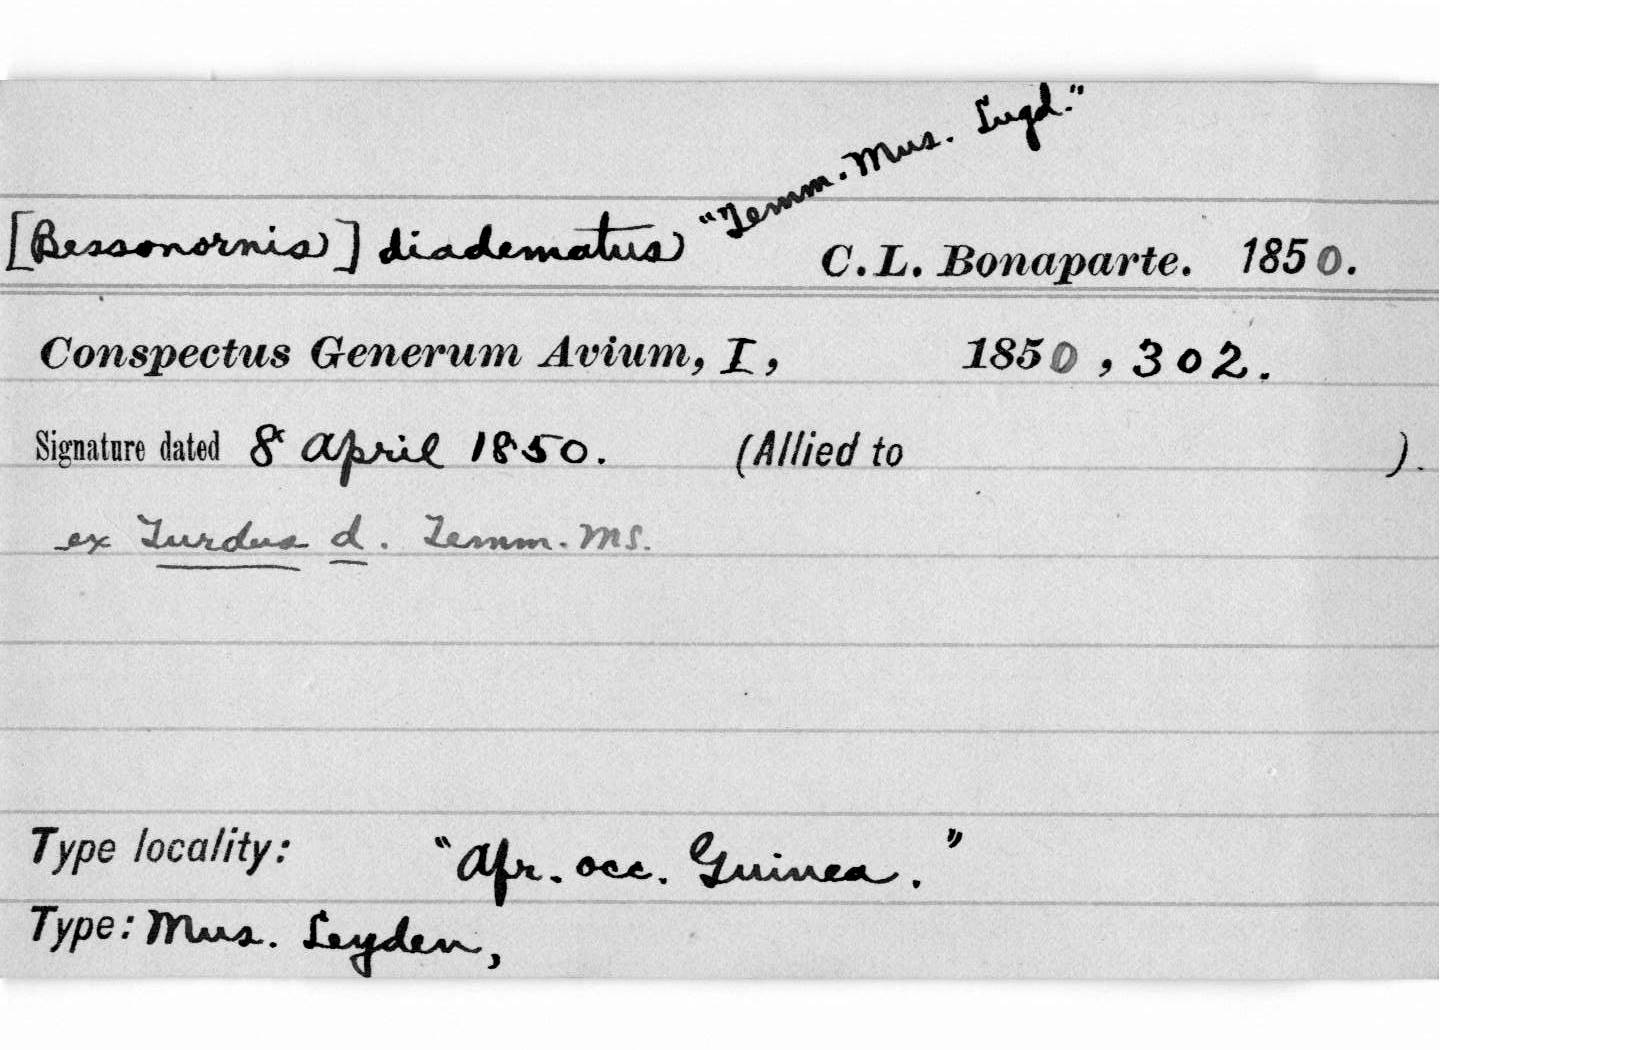 "Temm. Mus. Lugd."
[Bessonornis] diadematus C. L. Bonaparte. 1850.
Conspectus Generum Avium, I, 1850, 302.
Signature dated 8 April 1850. (Allied to ).
ex Turdus d. Temm. MS.
Type locality: "Afr. occ. Guinea."
Type: Mus. Leyden,